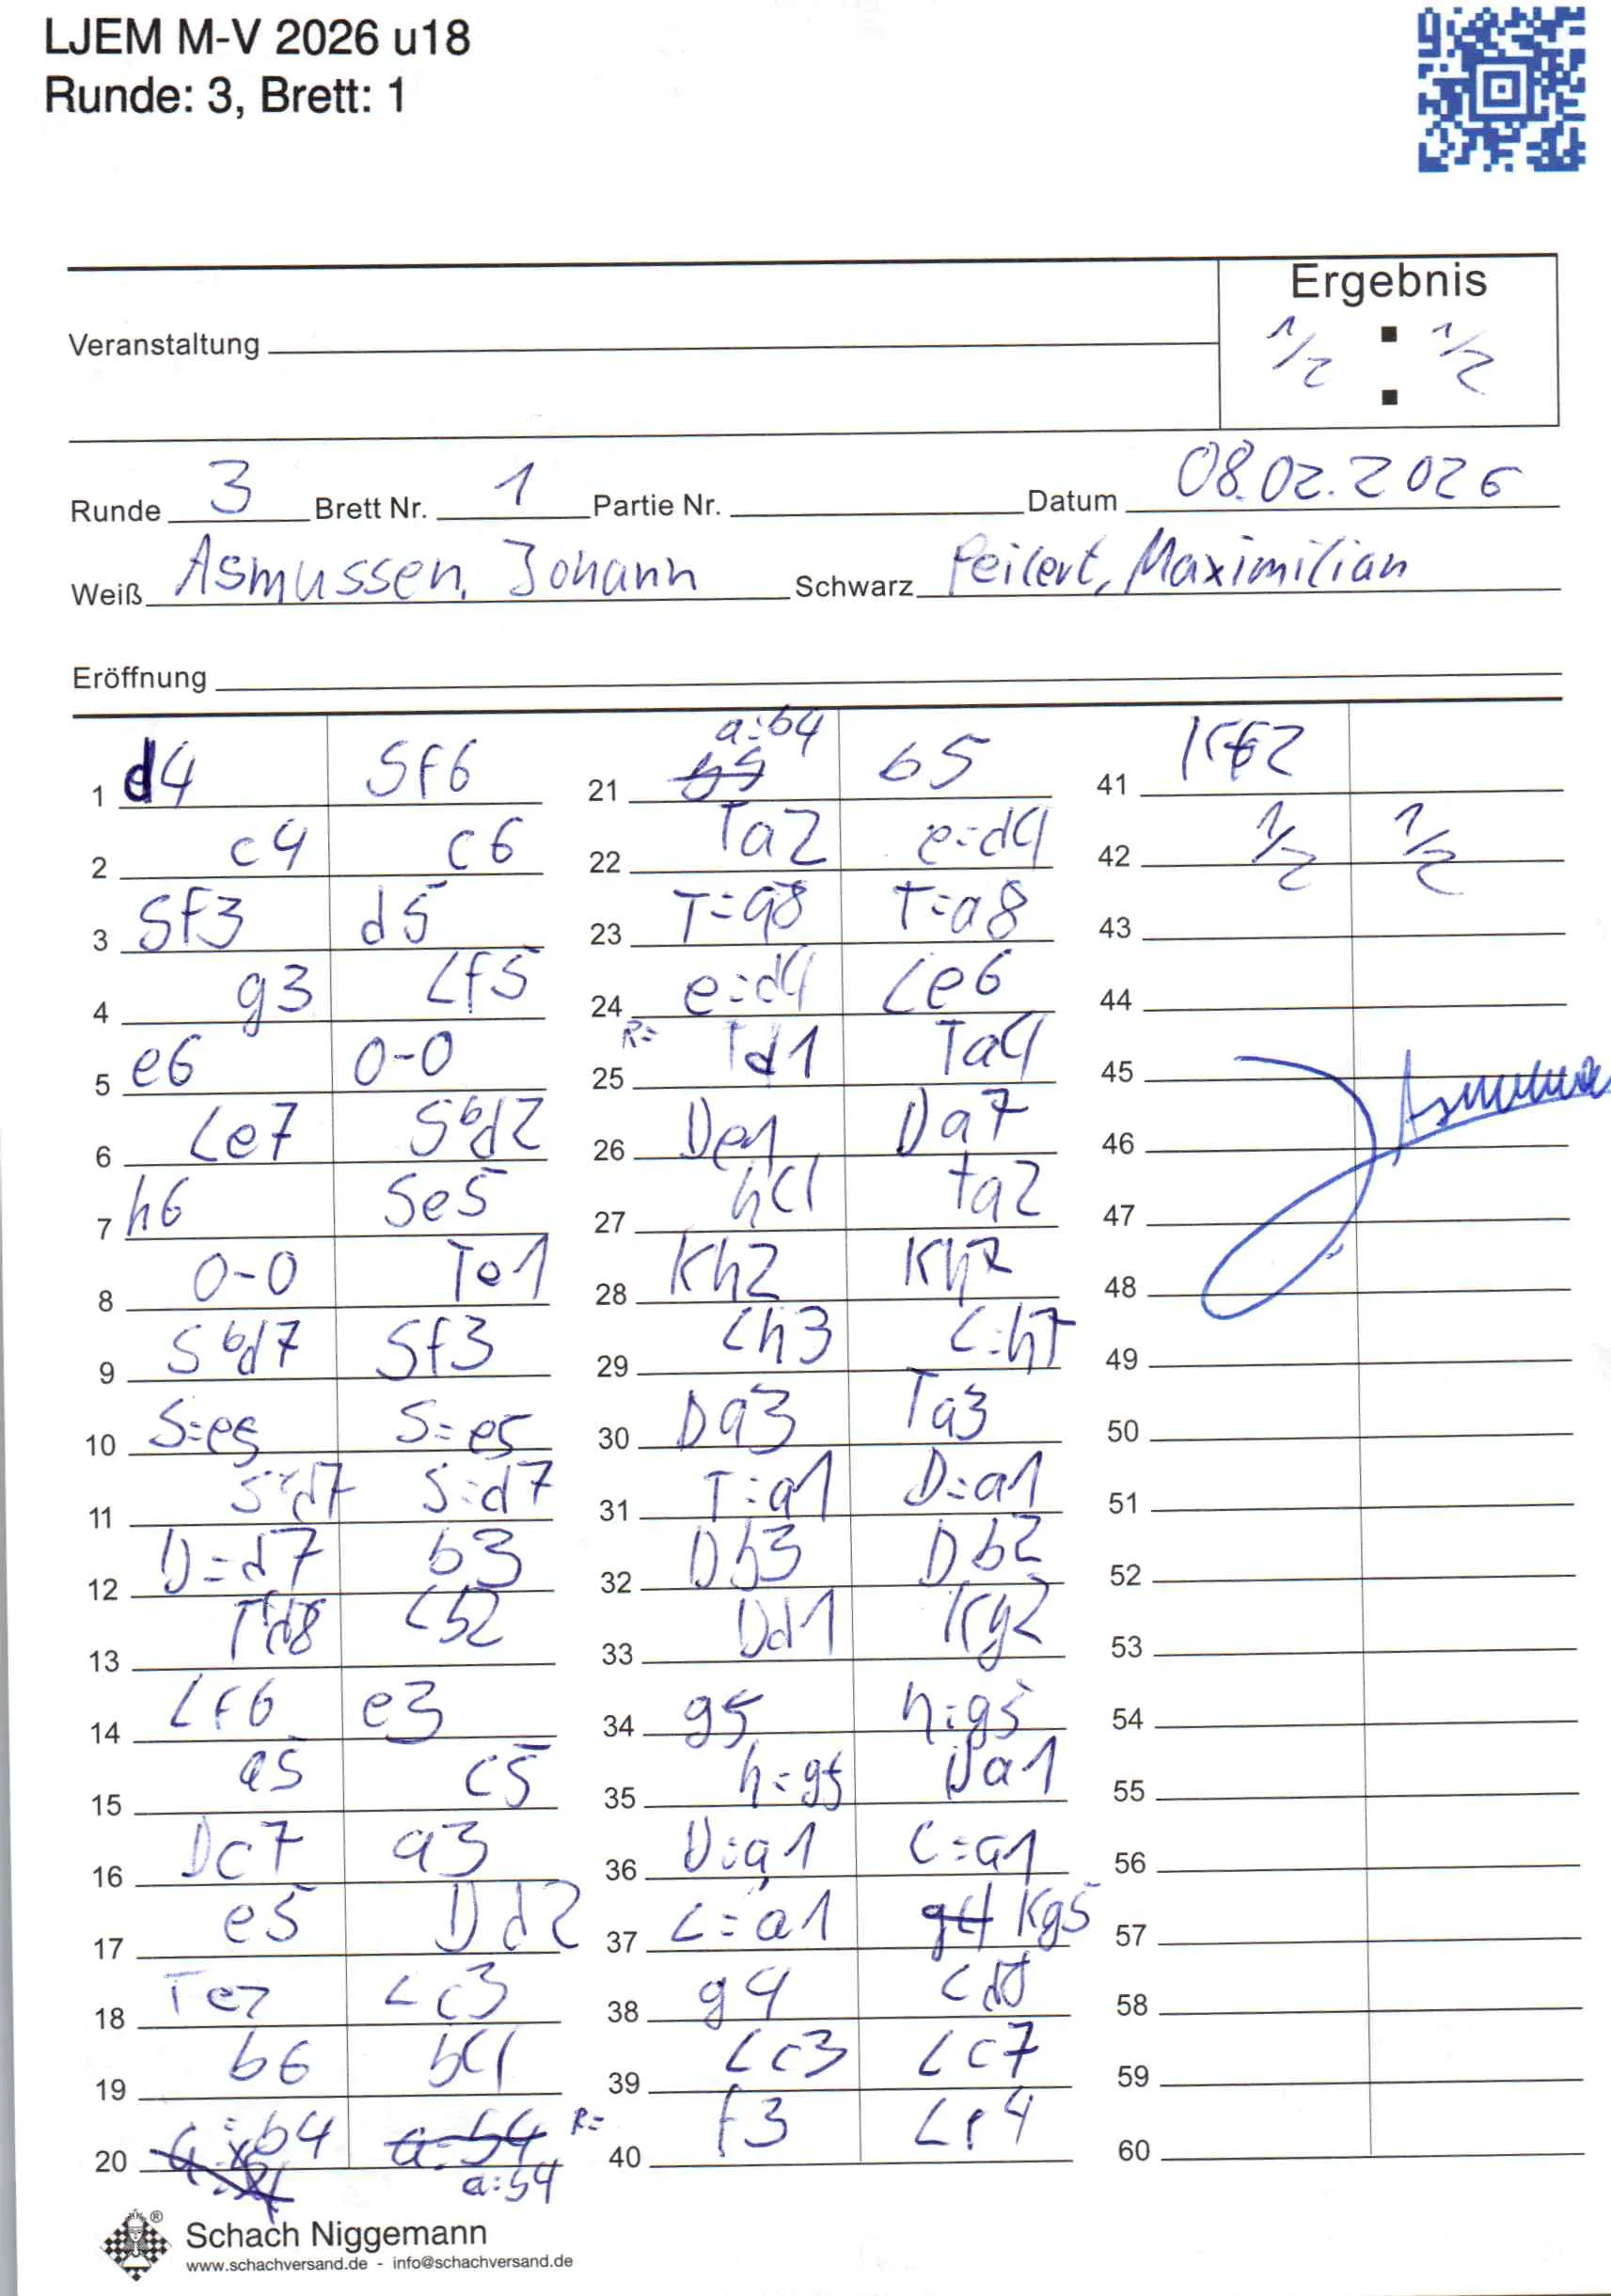 LJEM M-V 2026 u18
Runde: 3, Brett: 1
Ergebnis
Veranstaltung 1/2 : 1/2
Runde 3 Brett Nr. 1 Partie Nr. Datum 08.02.2026
Weiß Asmussen, Johann Schwarz Peilert, Maximilian
Eröffnung
1 d4 Sf6
2 c4 c6
3 Sf3 d5
4 g3 Lf5
5 e6 0-0
6 Le7 Sbd2
7 h6 Se5
8 0-0 Te1
9 Sbd7 Sf3
10 S:e5 S:e5
11 Sfd7 S:d7
12 D:d7 b3
13 Tfd8 Lb2
14 Lf6 e3
15 a5 c5
16 Dc7 a3
17 e5 Dd2
18 Te7 Lc3
19 b6 b4
20 a:b4 a:b4
21 a:b4 b5
22 Ta2 e:d4
23 T:a8 T:a8
24 e:d4 Le6
25 R= Td1 Ta4
26 De1 Da7
27 h4 Ta2
28 Kh2 Kh7
29 Lh3 L:h3
30 Da3 Ta3
31 T:a1 D:a1
32 Db3 Db2
33 Dd1 Kg2
34 g5 h:g5
35 h:g5 Da1
36 D:a1 L:a1
37 L:a1 Kg5
38 g4 Ld8
39 Lc3 Lc7
40 R= f3 Lf4
41 Kf2
42 1/2 1/2
43
44
45
46
47
48
49
50
51
52
53
54
55
56
57
58
59
60
Asmussen
Schach Niggemann
www.schachversand.de - info@schachversand.de